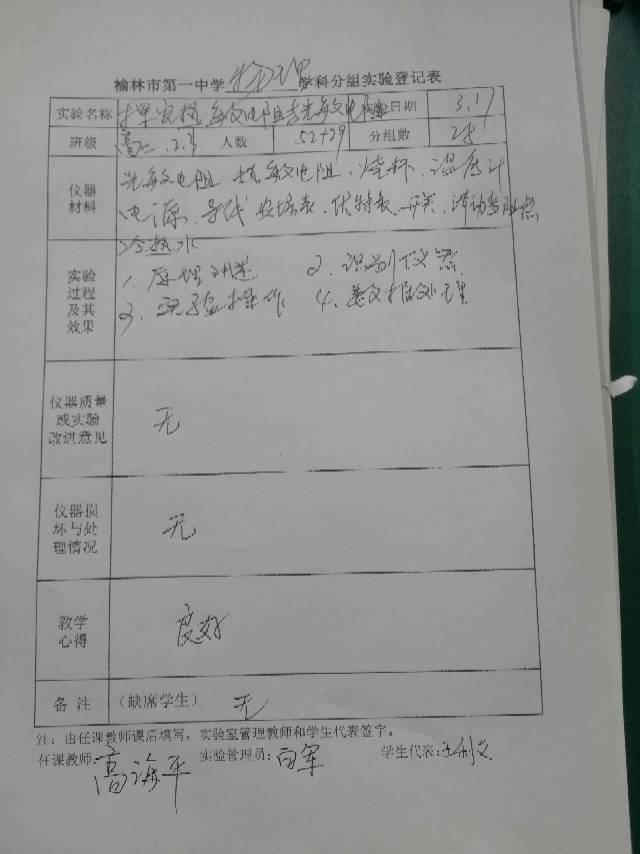 榆林市第一中学物理学科分组实验登记表
实验名称 探究热敏电阻与光敏电阻 日期 3.17
班级 高二.2.3 人数 52+29 分组数 28
仪器材料 光敏电阻 热敏电阻、烧杯、温度计
电源、导线 安培表、伏特表、开关、滑动变阻器
冷热水
实验过程及其效果 1、原理讲述 2、识别仪器
3、实验操作 4、数据处理
仪器质量或实验改进意见 无
仪器损坏与处理情况 无
教学心得 良好
备注 (缺席学生) 无
注:由任课教师课后填写,实验室管理教师和学生代表签字。
任课教师:高海平 实验管理员:白军 学生代表: